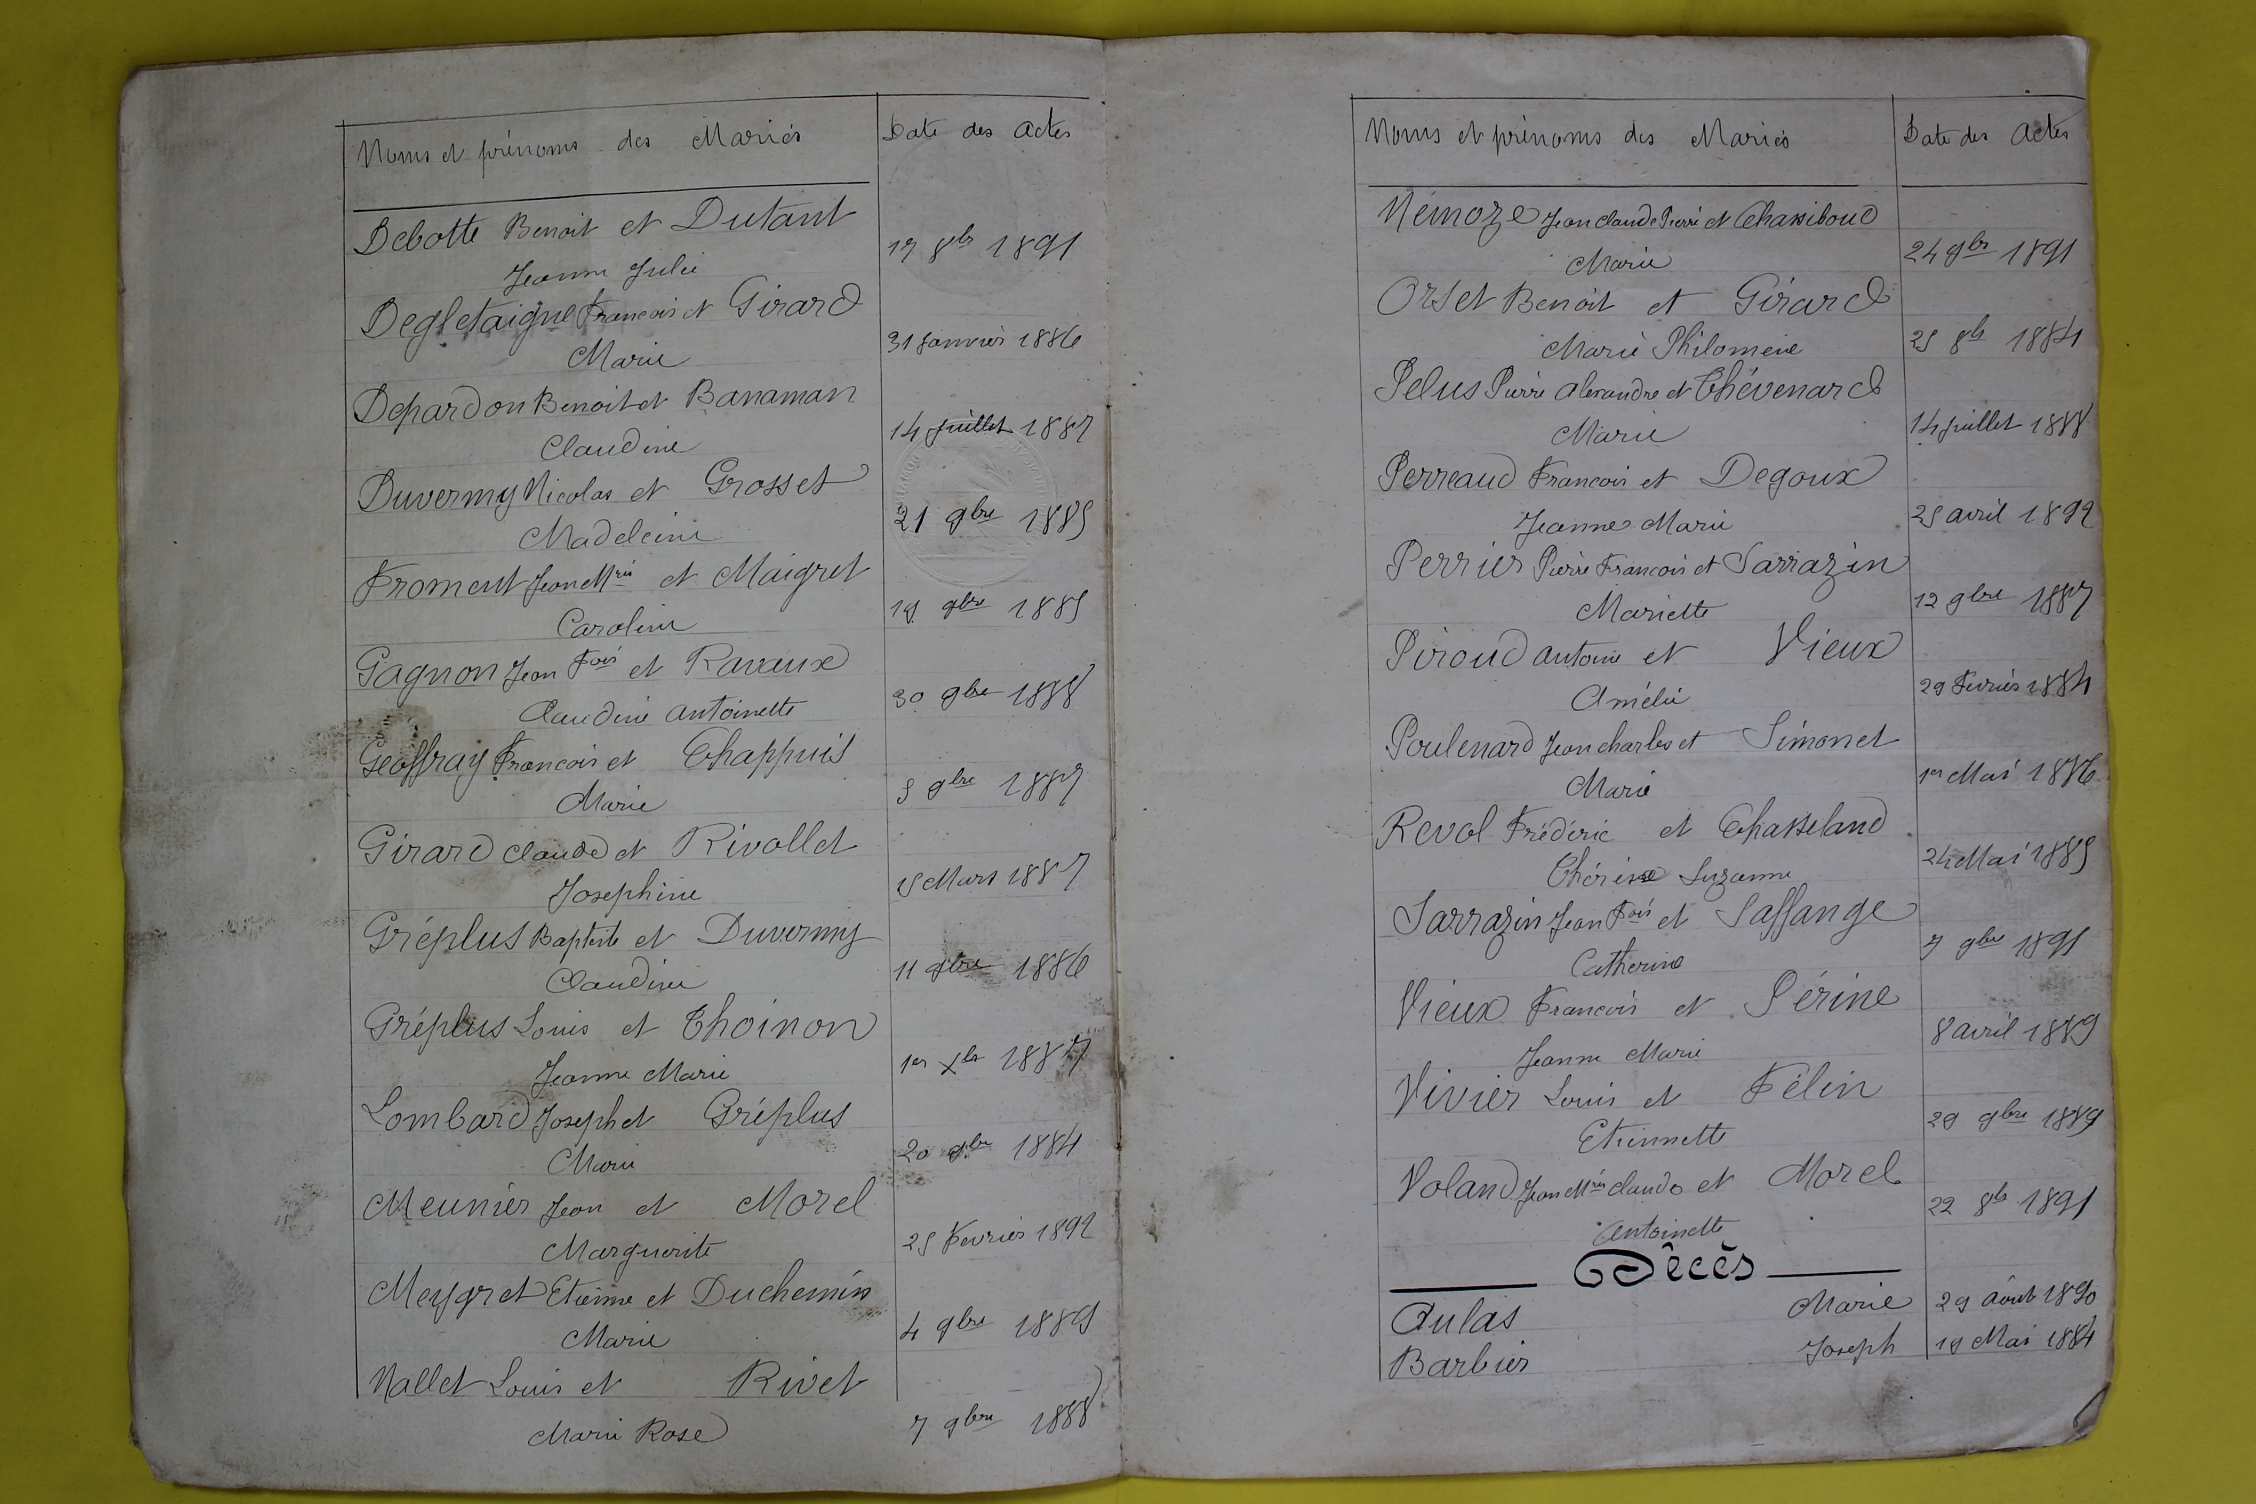 Noms et prénoms des Mariés Date des actes
Debotte Benoit et Dutant
Jeanne Julie 17 8bre 1891
Degletaigne Francois et Girard
Marie 31 Janvier 1886
Depardon Benoit et Banaman
Claudine 14 juillet 1887
Duvermy Nicolas et Grosset
Madeleine 21 9bre 1885
Froment Jean Mrie et Maigret
Caroline 19 9bre 1885
Gagnon Jean Fois et Ravaux
Claudine antoinette 30 9bre 1888
Geoffray Francois et Chappuis
Marie 5 9bre 1887
Girard Claude et Rivollet
Josephine 15 Mars 1887
Gréplus Baptiste et Duvermy
Claudine 11 9bre 1886
Gréplus Louis et Thoinon
Jeanne Marie 1er Xbre 1887
Lombard Joseph et Gréplus
Marie 20 9bre 1884
Meunier Jean et Morel
Marguerite 25 Fevrier 1892
Meygret Etienne et Duchemin
Marie 4 9bre 1889
Nallet Louis et Rivet
Marie Rose 7 9bre 1888
Noms et prénoms des Mariés Date des actes
Némoze Jean Claude Pierre et Chassiboud
Marie 24 9bre 1891
Orset Benoit et Girard
Marie Philomene 25 8bre 1884
Pelus Pierre alexandre et Thévenard
Marie 14 juillet 1888
Perreaud Francois et Degoux
Jeanne Marie 25 avril 1892
Perrier Pierre Francois et Sarrazin
Mariette 12 9bre 1887
Piroud antoine et Vieux
Amélie 29 Fevrier 1884
Poulenard Jean charles et Simonet
Marie 1er Mai 1886
Revol Frédéric et Chasseland
Suzanne 24 Mai 1885
Sarrazin Jean Fois et Saffange
Catherine 7 9bre 1891
Vieux Francois et Périne
Jeanne Marie 8 avril 1889
Vivier Louis et Félin
Etiennette 29 9bre 1889
Voland Jean Mrie Claude et Morel
Antoinette 22 8bre 1891
Décès
Aulas Marie 29 Août 1890
Barbier Joseph 19 Mai 1884